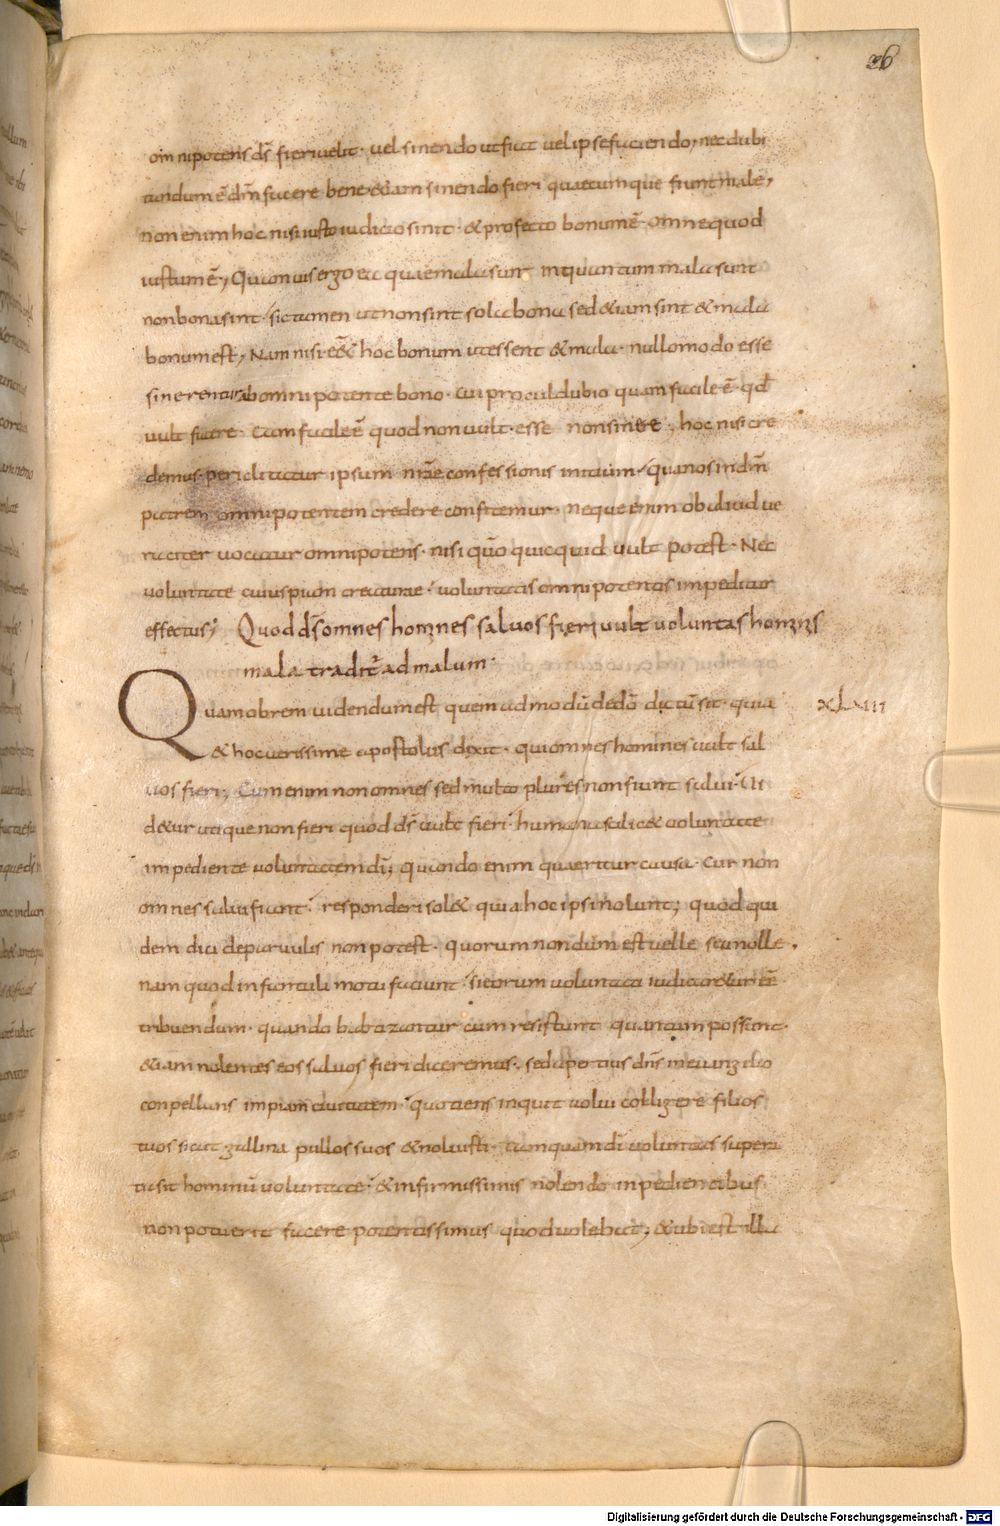 26
omnipotens d̄s fieri velit · vel sinendo ut fiat vel ipse faciendo, nec dubi
tandum ē dm̄ facere bene etiam sinendo fieri quaecumque fiunt male,
non enim hoc nisi iusto iudicio sinit · & profecto bonum ē · omne quod
iustum ē, Quamvis ergo ea quae mala sunt inquantum mala sunt
non bona sint · sic tamen ut non sint sola bona sed &iam sint & mala
bonum est, Nam nisi eē& hoc bonum ut essent & mala · nullo modo esse
sinerentur ab omnipotente bono · cui procul dubio quam facile ē · qd̄
vult facere · tam facile ē quod non vult · esse non sinere, hoc nisi cre
demus · periclitatur ipsum nr̄ae confessionis initium · qua nos in dm̄
patrem omnipotentem credere confitemur · neque enim ob aliud ve
raciter vocatur omnipotens · nisi qūo quicquid vult potest · Nec
voluntate cuiuspiam creaturae · voluntatis omnipotentis impeditur
effectus; Quod d̄s omnes homines salvos fieri vult voluntas hominis
mala tradit̄ ad malum ·
Quamobrem videndum est quem ad modū de dō dictū sit · quia XLIII
& hoc verissime apostolus dixit · qui omnes homines vult sal
vos fieri, Cum enim non omnes sed multo plures non fiunt salui · Ui
d&ur utique non fieri quod d̄s vult fieri · humana scilic& voluntate
impediente voluntatem dī; quando enim quaeritur causa · cur non
omnes salui fiant · responderi sol& quia hoc ipsi nolunt; quod qui
dem dici de parvulis non potest · quorum nondum est velle seu nolle,
nam quod infantuli motu faciunt · si eorum voluntati iudicar&ur eē
tribuendum · quando babtizantur cum resistunt quantum possunt ·
&iam nolentes eos salvos fieri diceremus · sed apertius dn̄s in evangelio
conpellans impiam civitatem · quotiens inquit volui colligere filios
tuos sicut gallina pullos suos & noluisti · tamquam dī voluntas supera
ta sit hominū voluntate · & infirmissimis nolendo inpedientibus
non potuerit facere potentissimus quod volebat; & ubi est illa
Digitalisierung gefördert durch die Deutsche Forschungsgemeinschaft - DFG